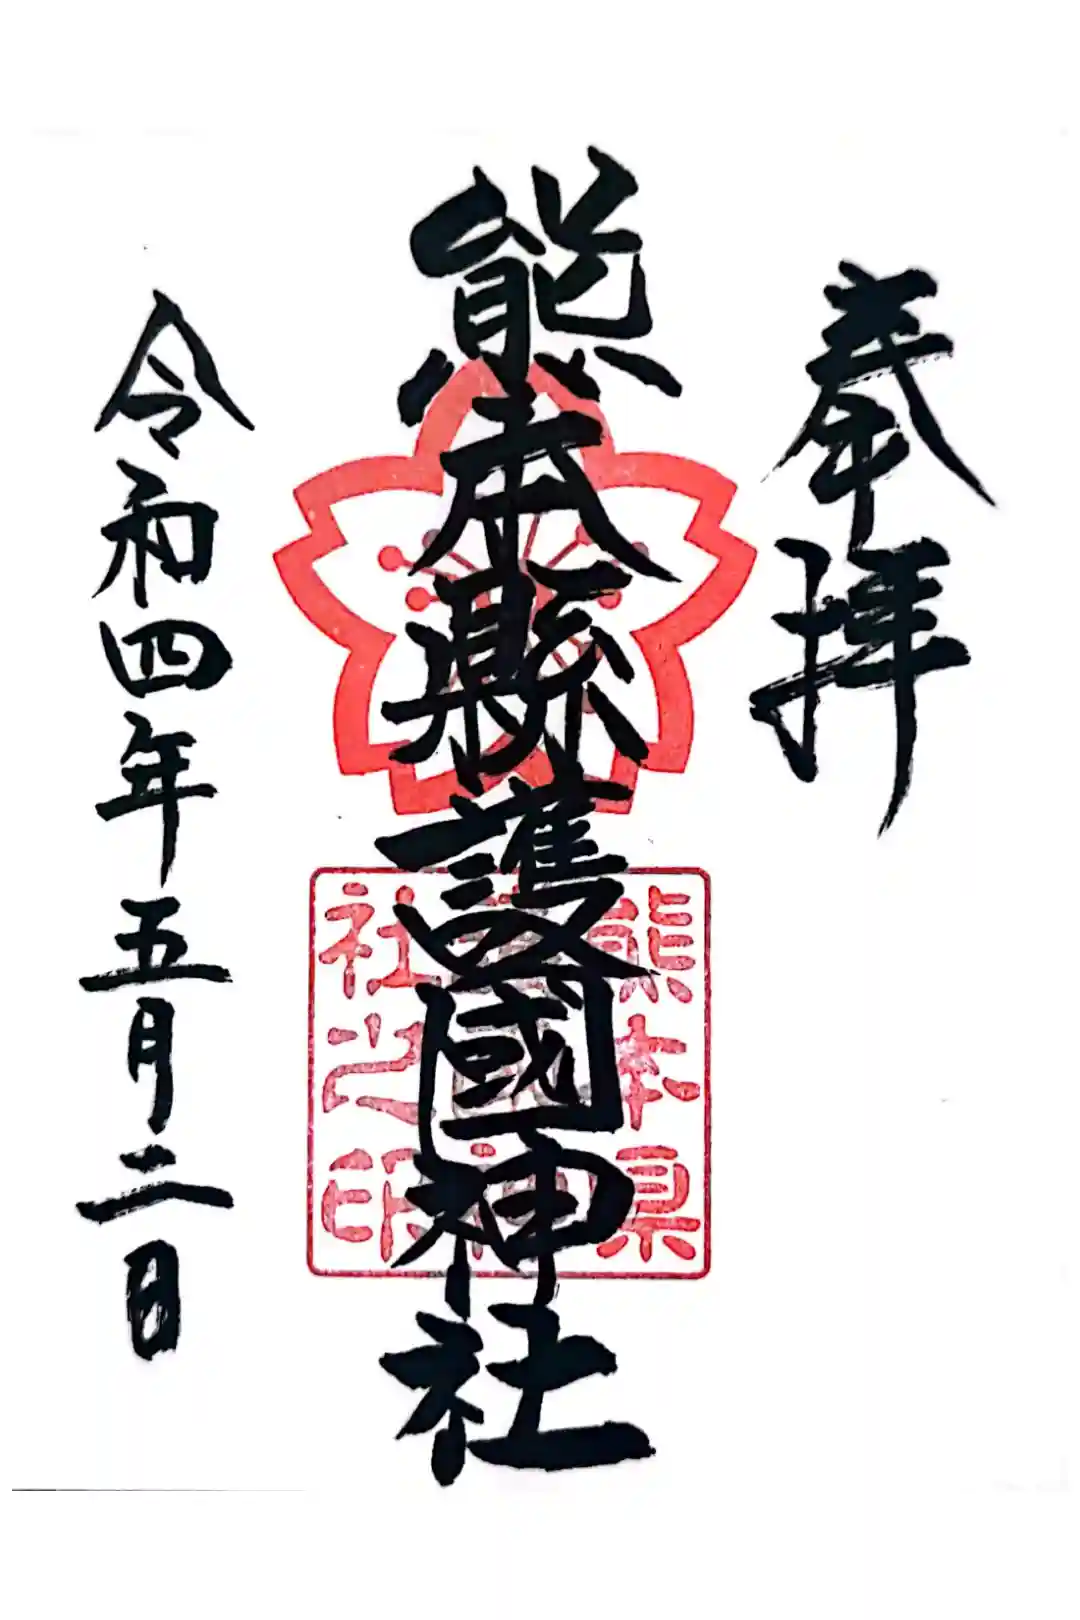 奉拝
熊本縣護國神社
熊本県
護国神
社之印
令和四年五月二日